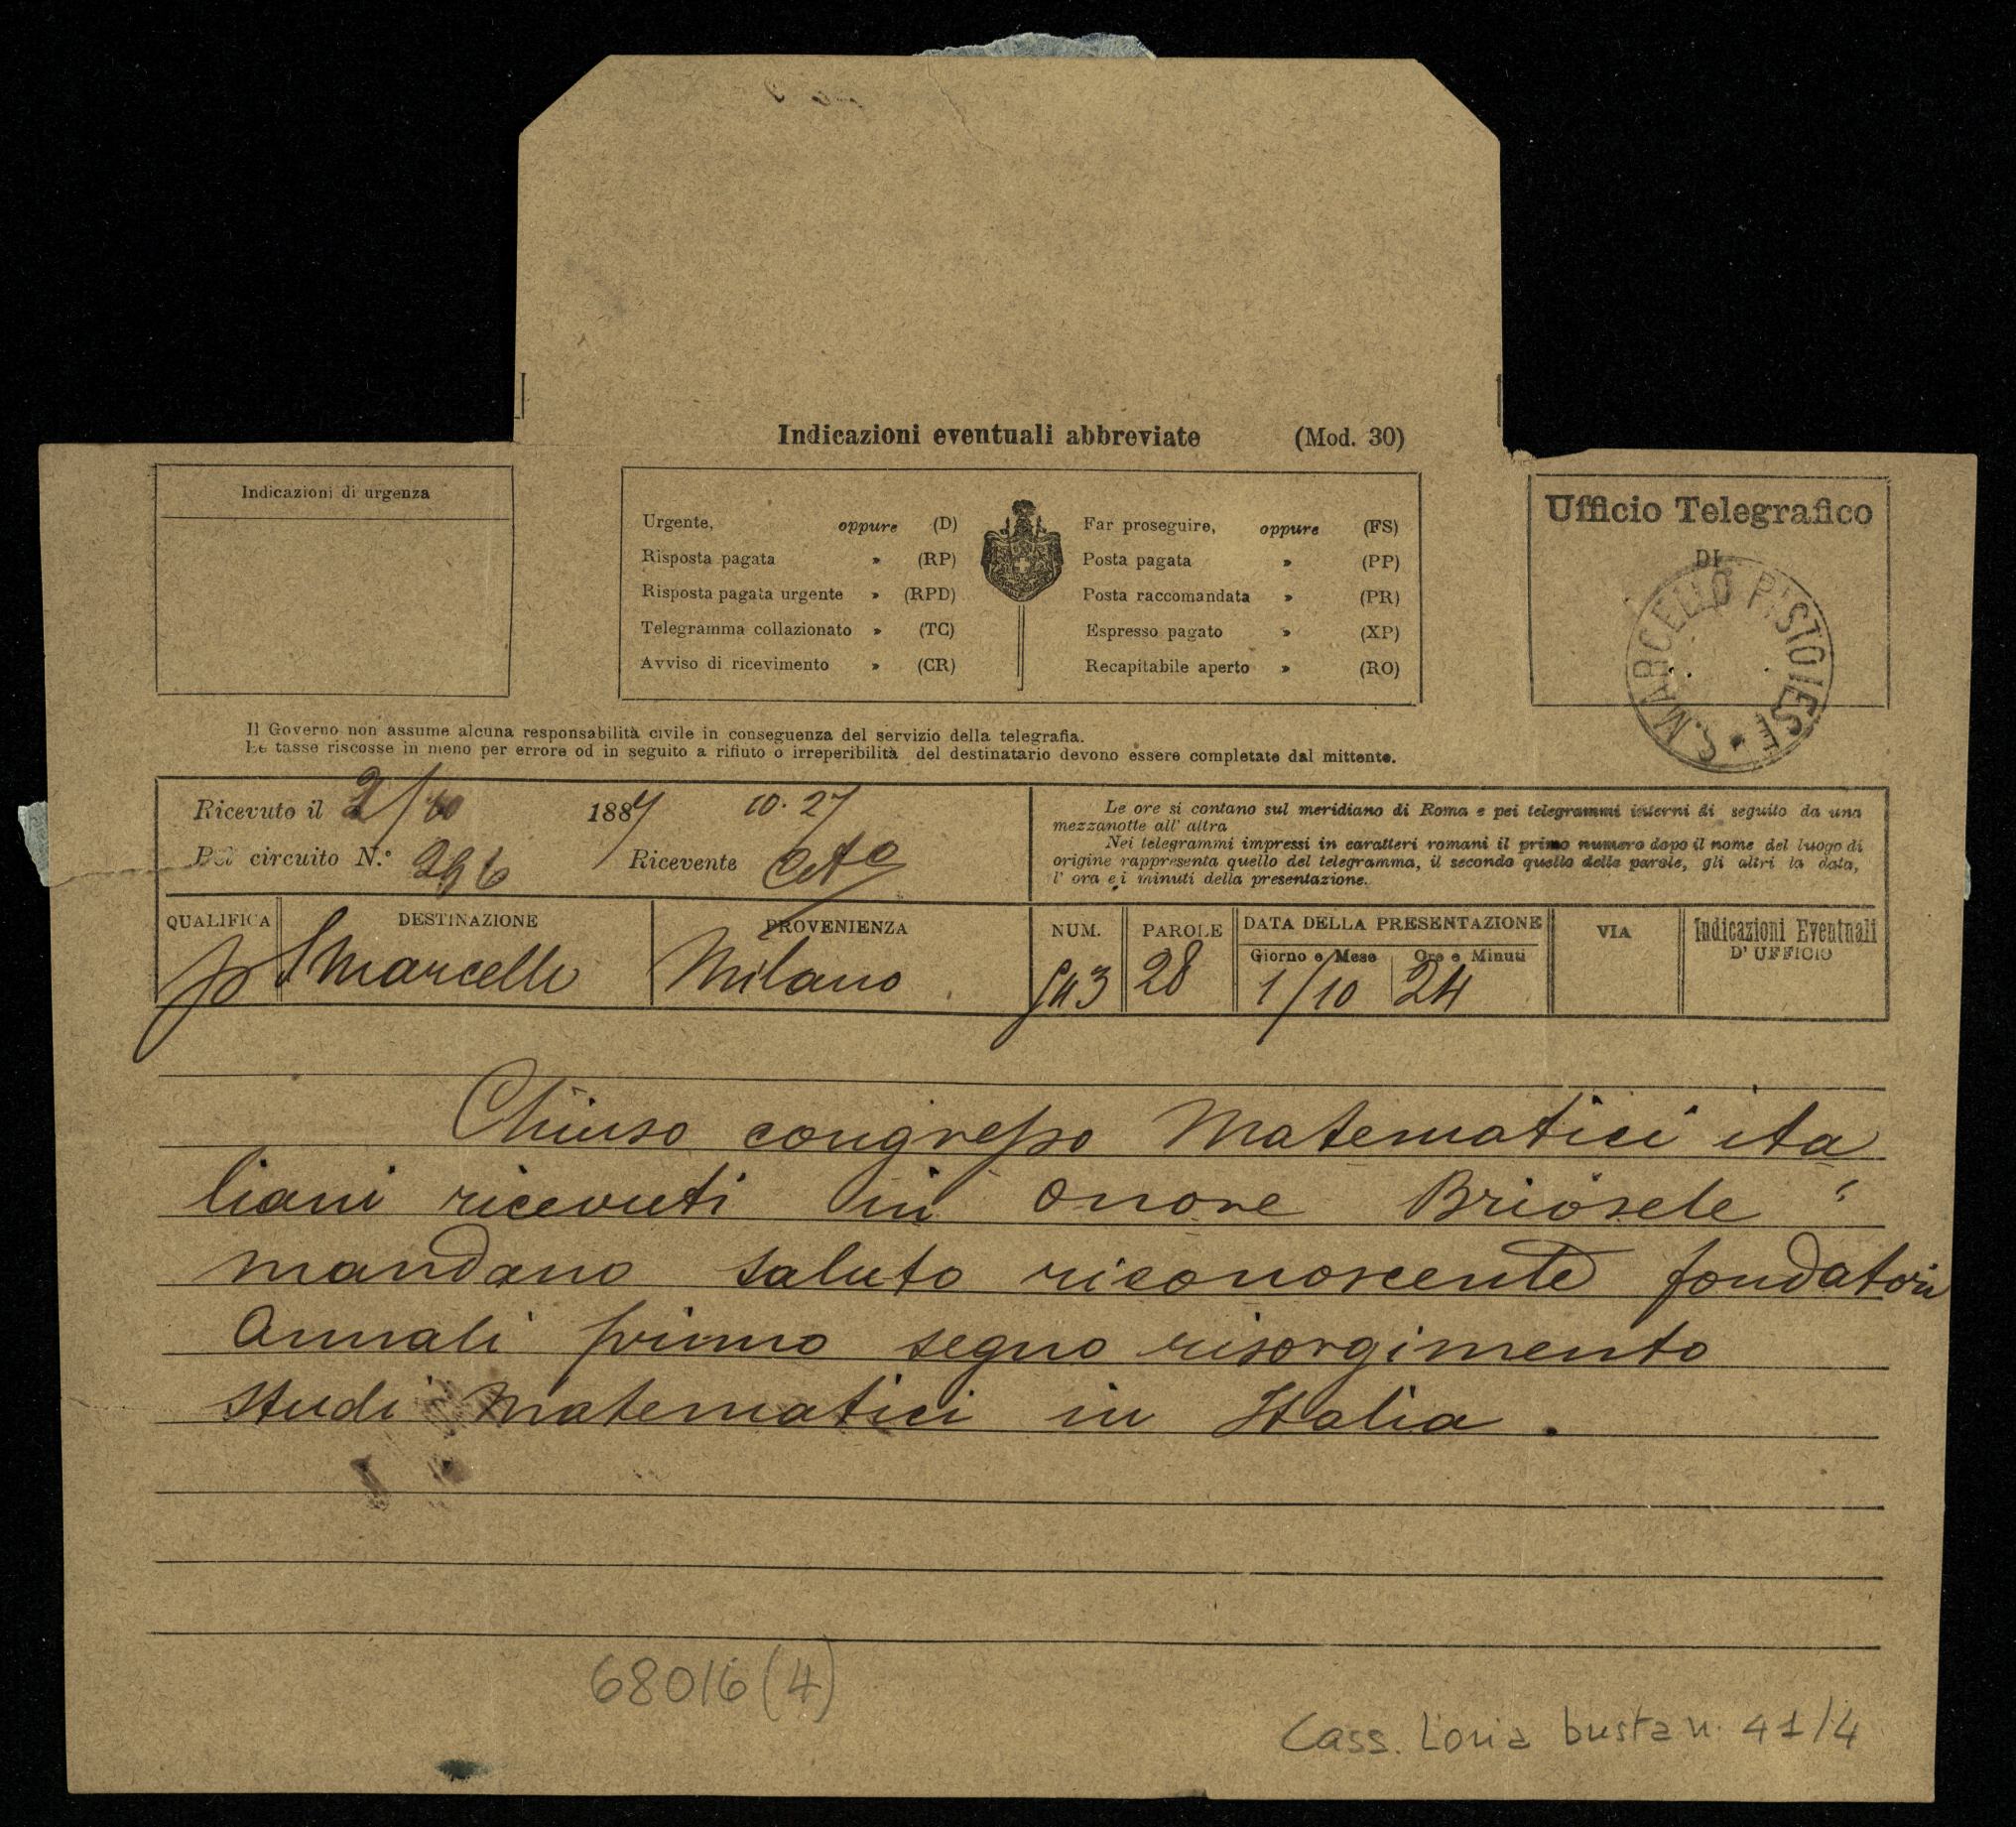 Indicazioni eventuali abbreviate (Mod. 30)
Indicazioni di urgenza
Urgente, oppure (D)
Risposta pagata » (RP)
Risposta pagata urgente » (RPD)
Telegramma collazionato » (TC)
Avviso di ricevimento » (CR)
Far proseguire, oppure (FS)
Posta pagata » (PP)
Posta raccomandata » (PR)
Espresso pagato » (XP)
Recapitabile aperto » (RO)
Ufficio Telegrafico
DI
S. MARCELLO PISTOIESE
Il Governo non assume alcuna responsabilità civile in conseguenza del servizio della telegrafia.
Le tasse riscosse in meno per errore od in seguito a rifiuto o irreperibilità del destinatario devono essere completate dal mittente.
Ricevuto il 2/10 1887 10.27
Pel circuito N.° 296 Ricevente
Le ore si contano sul meridiano di Roma e pei telegrammi interni di seguito da una
mezzanotte all' altra
Nei telegrammi impressi in caratteri romani il primo numero dopo il nome del luogo di
origine rappresenta quello del telegramma, il secondo quello delle parole, gli altri la data,
l' ora e i minuti della presentazione.
QUALIFICA DESTINAZIONE PROVENIENZA NUM. PAROLE DATA DELLA PRESENTAZIONE VIA Indicazioni Eventuali
D' UFFICIO
Giorno e Mese Ore e Minuti
p S Marcello Milano 28 1/10 24
Chiuso congresso Matematici ita
liani ricevuti in onore Briosele
mandano saluto riconoscente fondatori
Annali primo segno risorgimento
studi matematici in Italia.
68016 (4)
Cass. Loria busta n. 41/4